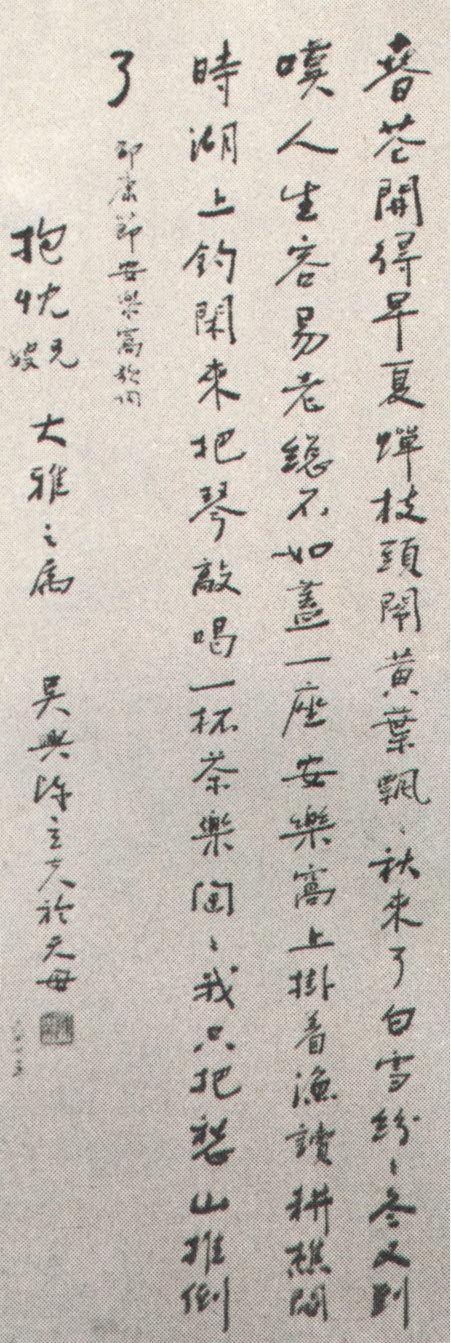 春花開得早夏蟬枝頭鬧黃葉飄〻秋來了白雪紛〻冬又到
嘆人生容易老總不如蓋一座安樂窩上掛着漁讀耕樵閒
時湖上釣閒來把琴敲喝一杯茶樂陶〻我只把愁山推倒
了
邵康節安樂窩於詞
抱忱兄嫂 大雅之屬
吳興陳立夫於天母